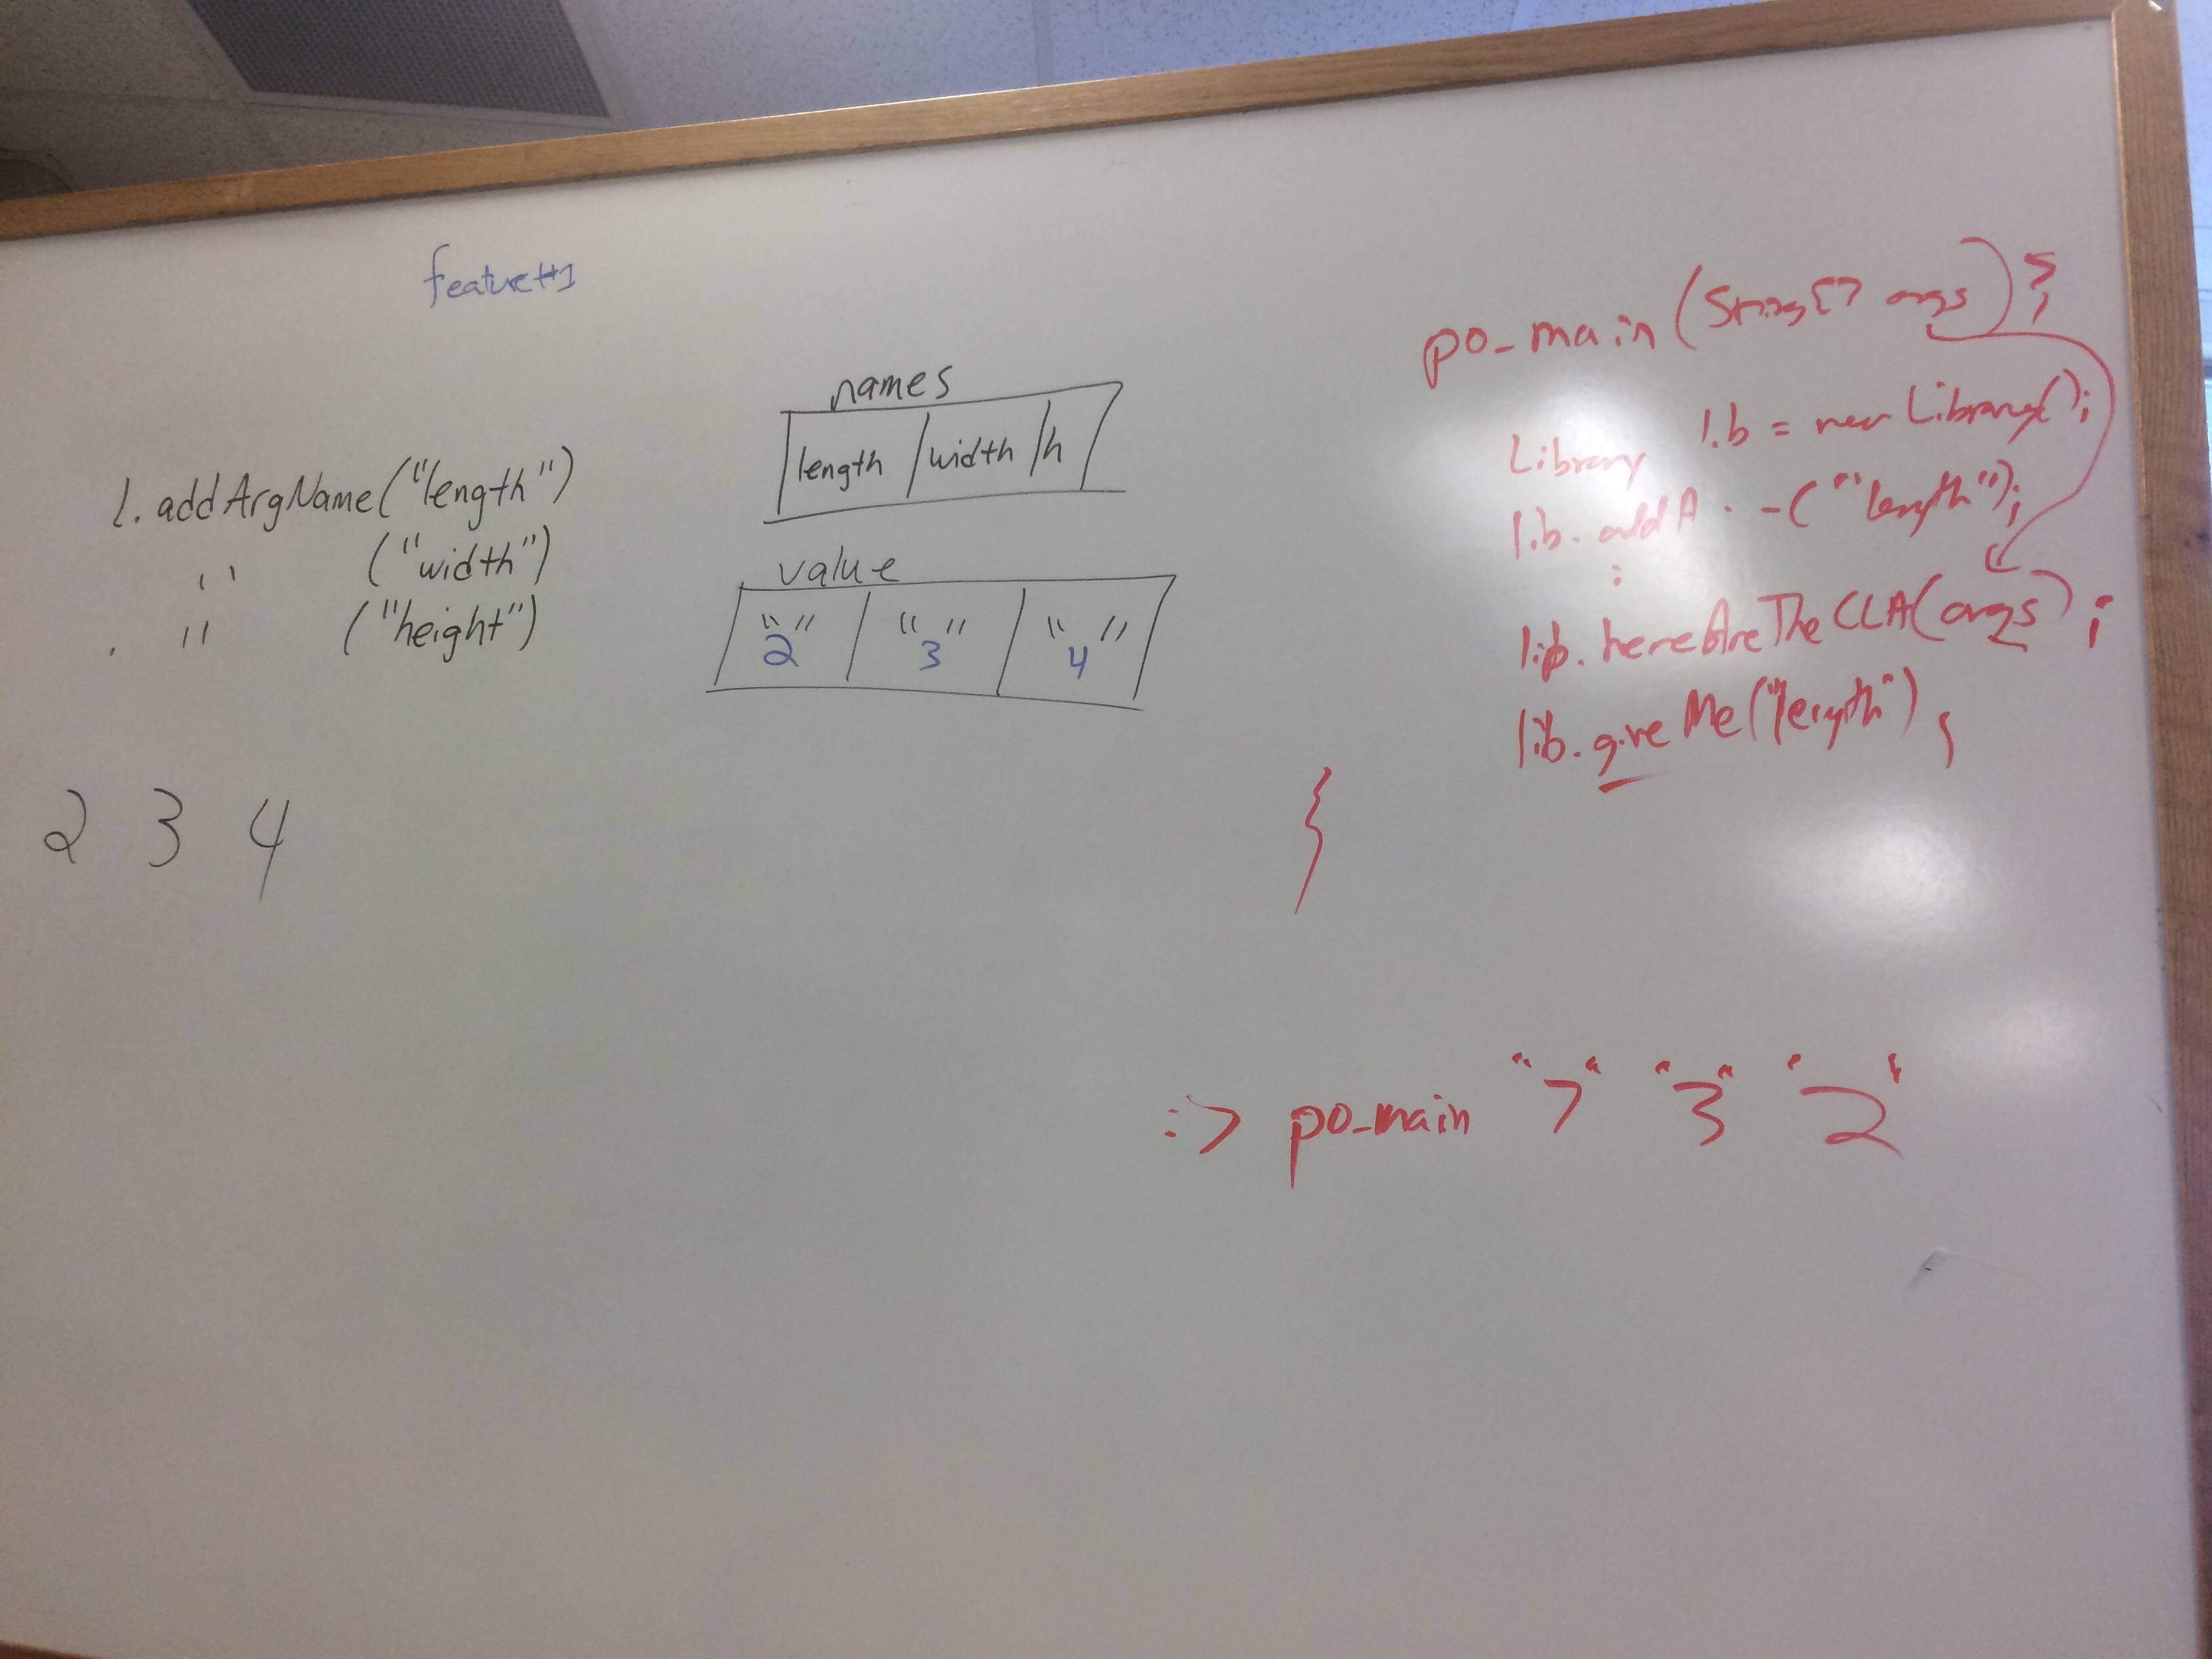 feature#1
l.addArgName("length")
" ("width")
. " ("height")
2 3 4
names
length width h
value
"2" "3" "4"
po_main(String[] args) {
Library lib = new Library();
lib.addA..-("length");
:
lib.hereAreTheCLA(args);
lib.giveMe("length");
}
:> po_main "7" "3" "2"